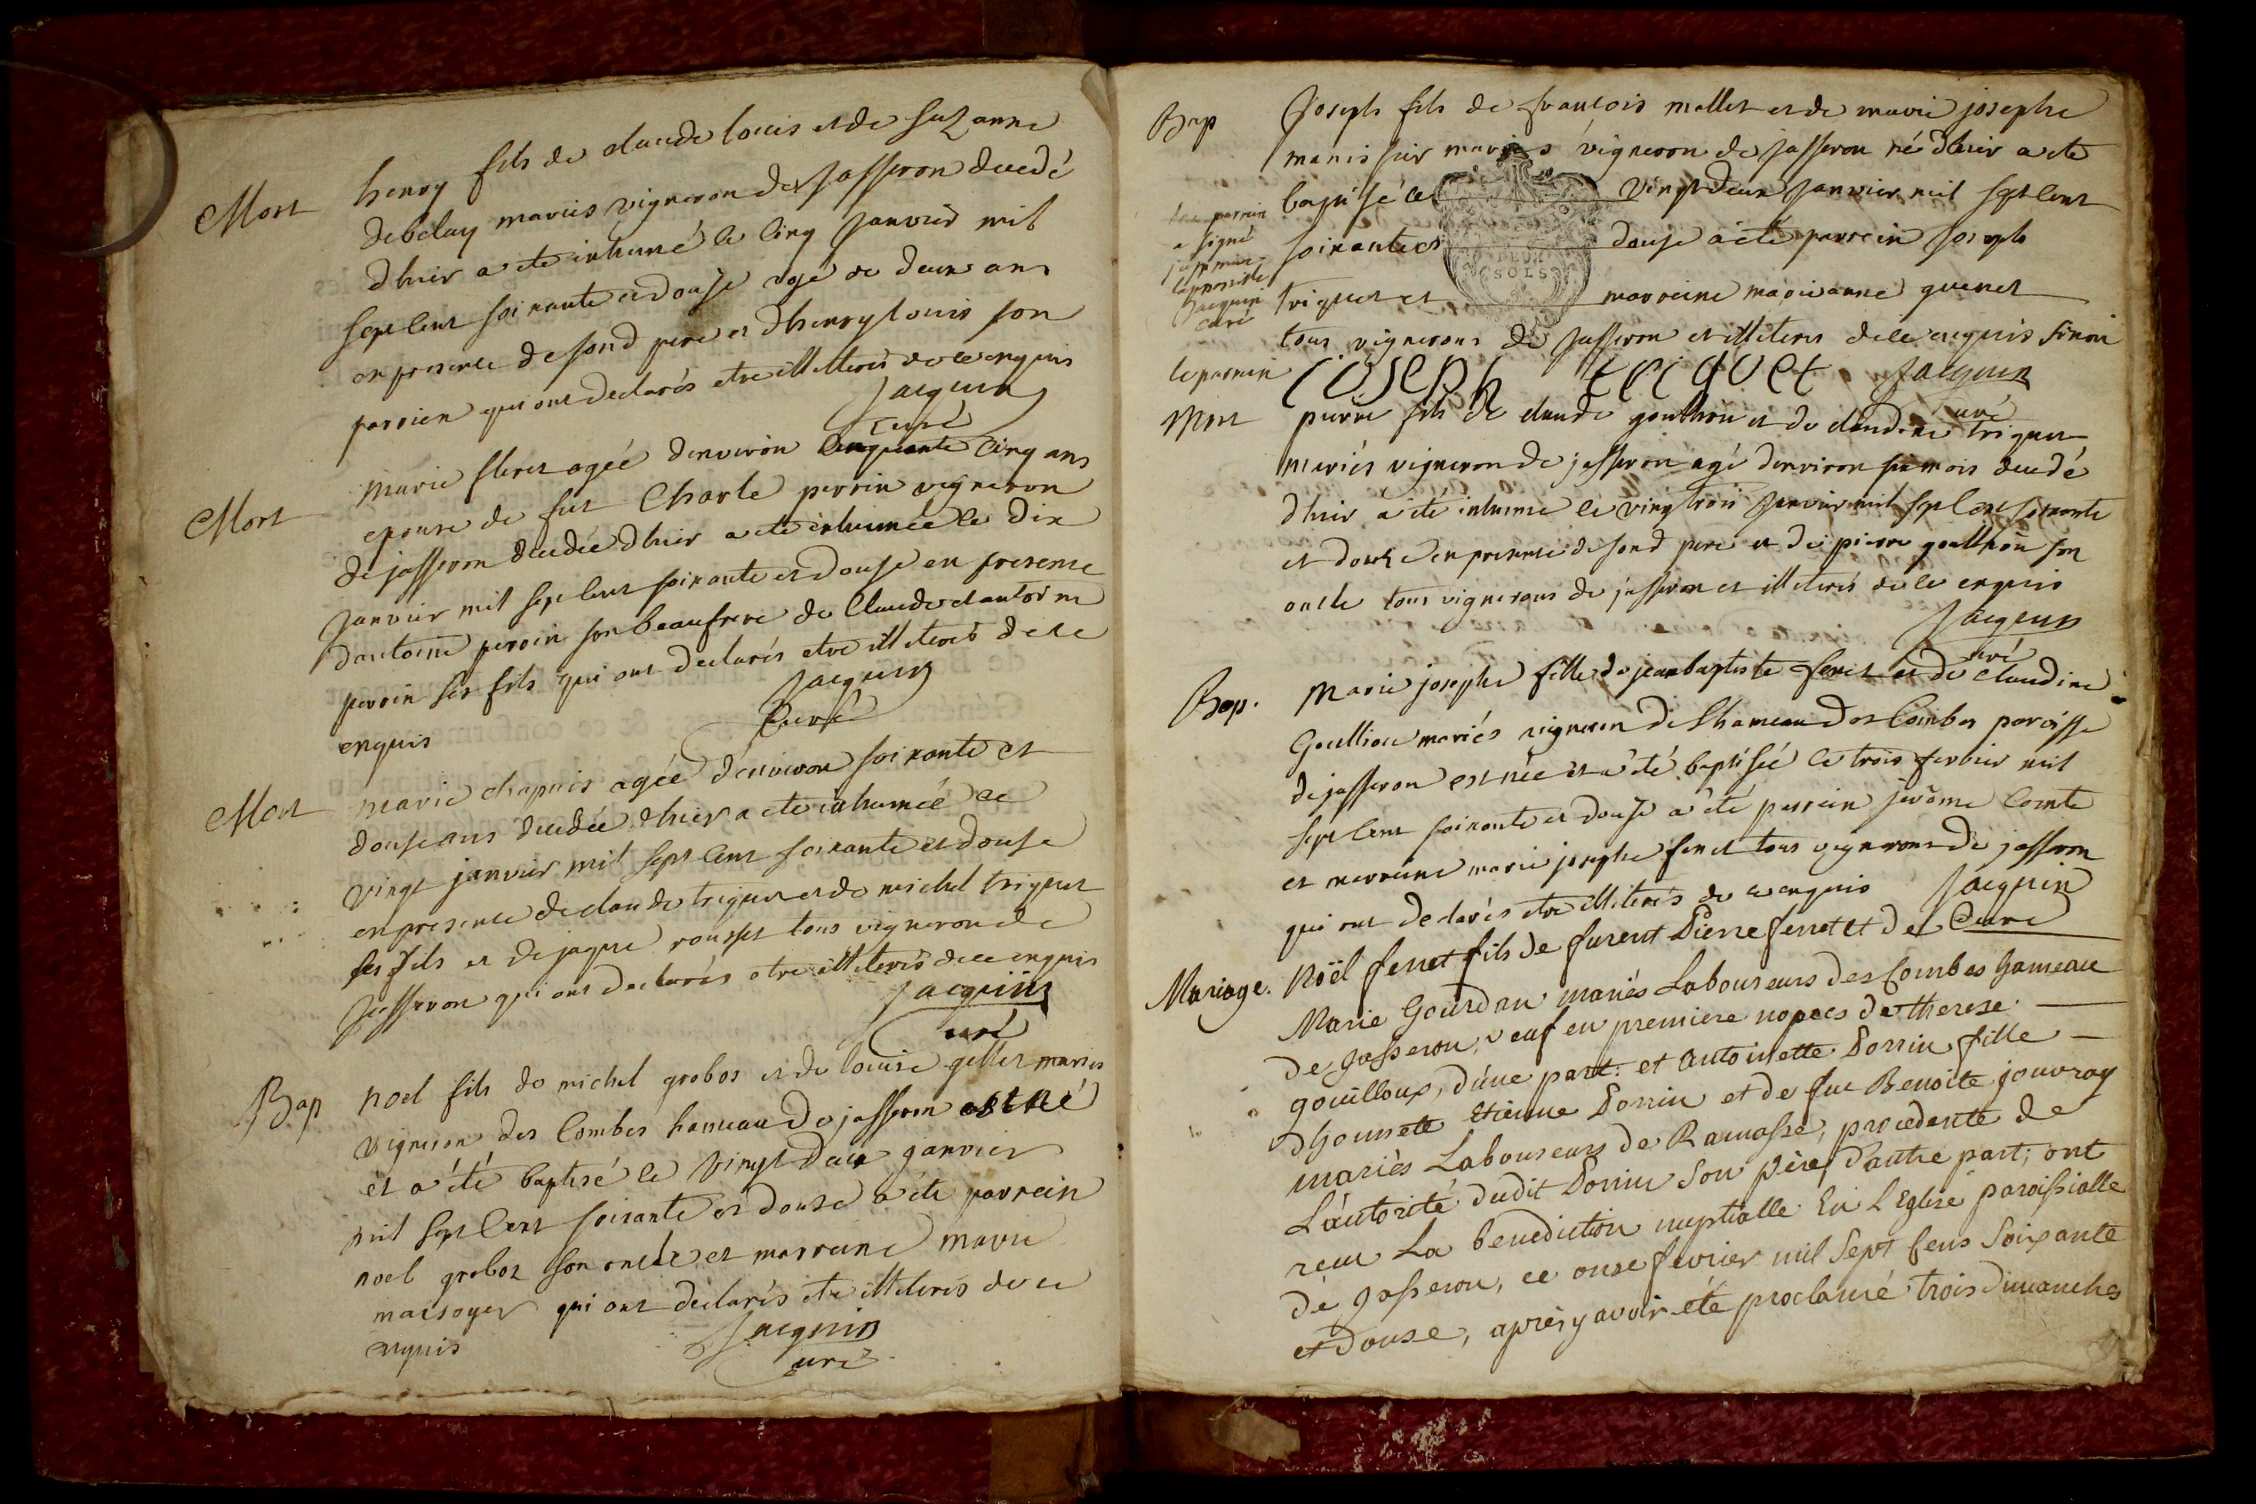 Mort
henry fils de claude louis et de suzanne
debelay mariés vigneron de jasseron decedé
dhier a ete inhumé le cinq janvier mil
sept cent soixante et douse agé de deux ans
en presence desond pere et dhenry louis son
parrien qui ont declarés etre illiterés de ce enquis
jacquin
curé
Mort
marie fleret agée denviron cinquante cinq ans
epouse de fut Charle perrin vigneron
de jasseron decedée dhier a ete inhumée le dix
janvier mil sept cent soixante et douse en presence
dantoine perrin son beaufrere de Claude et antoine
perrin ses fils qui ont declarés etre illiterés de ce
enquis
jacquin
curé
Mort
marie chapuis agée d'environ soixante et
douse ans decedée dhier a ete inhumée le
vingt janvier mil sept cent soixante et douse
en presence de claude triquet et de michel triquet
ses fils et de jaque rousset tous vigneron de
jasseron qui ont declarés etre illiterés de ce enquis
jacquin
curé
Bap
noel fils de michel grobos et de louise gillet mariés
vigneron des Combes hameau de jasseron est né
et a été baptisé le vingt deux janvier
mil sept cent soixante et douse a été parrein
noel grobos son oncle et marreine marie
marsoyer qui ont declarés etre illiterés de ce
enquis
jacquin
curé
Bap
joseph fils de francois mallet et de marie josephe
manissier mariés vigneron de jasseron né dhier a ete
baptisé le vingt deux janvier mil sept cent
soixante et douse a été parrein joseph
triquet et marreine marie anne guenet
tous vignerons de jasseron et illiterés de ce enquis sinon
le parrein
joseph triquet jacquin
curé
parrein
a signé
jacquin
curé
DEUX
SOLS
Mort
pierre fils de claude gouthon et de claudine triquet
mariés vigneron de jasseron agé denviron six mois decedé
dhier a été inhumé le vingt trois janvier mil sept cent soixante
et douze en presence desond pere et de pierre goulthon son
oncle tous vignerons de jasseron et illiterés de ce enquis
jacquin
curé
Bap.
Marie josephe fille de jean baptiste feret et de claudine
Goullion mariés vigneron de lhameau des Combes paroisse
de jasseron est née et a été baptisée le trois fevrier mil
sept cent soixante et douse a été parrein jerôme Comte
et marreine marie josephe feret tous vignerons de jasseron
qui ont declarés etre illiterés de ce enquis jacquin
Curé
Mariage.
Noël ferret fils de furent Pierre ferret et de
Marie Gourdan mariés Laboureurs des Combes hameau
de Jasseron, veuf en premiere nopces de therese
gouilloux, d'une part: et Antoinette Porrin fille
d'honnete Etienne Porrin et de fue Benoite jouvray
mariès Laboureurs de Ramasse, procedante de
L'autorité dudit Porrin Son père, d'autre part; ont
recu La benediction nuptialle En L'Eglise paroissialle
de Jasseron, ce onse fevrier mil Sept cens Soixante
et douse, après y avoir été proclamé trois dimanches